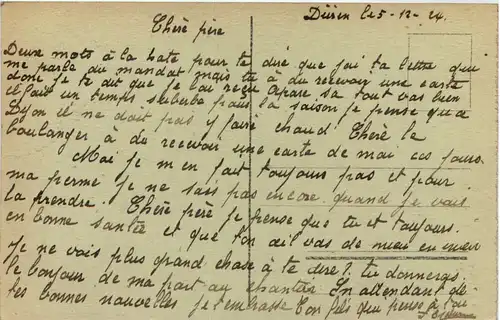 Düren le 5-12-24.
Chère père
Deux mots à la hate pour te dire que j'ai ta lettre qui
me parle du mandat mais tu à du recevoir une carte
donc je te dit que je l'ai reçu Apare sa tout vas bien
il fait un temps suberbe pour la saison je pense que a
Lyon il ne doit pas y faire chaud Chère le
boulanger à du recevoir une carte de moi ces jours.
Moi je m'en fait toujours pas et pour
ma perme je ne sais pas encore quand je vais
la prendre. Chère père je pense que tu et toujours.
en bonne santée et que ton œil vas de mieu en mieu
Je ne vois plus grand chose à te dire ? tu donneras
le bonjour de ma part au chantier. En attendant de
tes bonnes nouvelles je t'embrasse Ton fils qui pense à toi